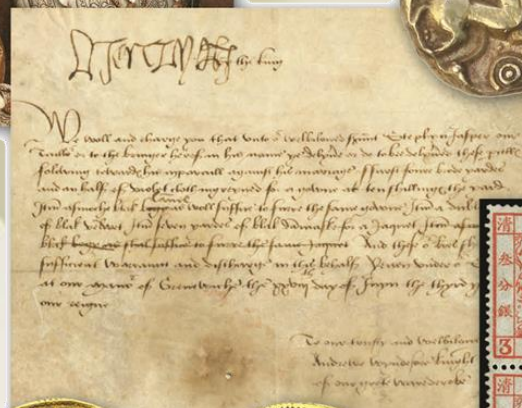 By the king
We woll and charge you that unto oʳ welbiloved Stephyn Jasper our
Taillo or to the bringer hereof in his name ye delyve or do to be delyvered these
foloving towards his apparaill against his mariage ffurst foure brode yardes
and an half of violet cloth ingreyned for a gowne at ten shillings the yard
Itm asmoche blak conye as woll suffise to furre the same gowne Itm a
of blak velvet Itm seven yardes of blak damaske for a Jaquet Itm
blak bogye as shal suffise to furre the same Jaquet And these oʳ
sufficient warrant and discharge in this behalf Yeven undre oʳ
at our manoʳ of Grenewiche the day of Juyn the thryd
our reigne
To our trusty and welbilove
Andrewe Wyndesore knight
of our grete warderobe
清
叁分銀
3
清